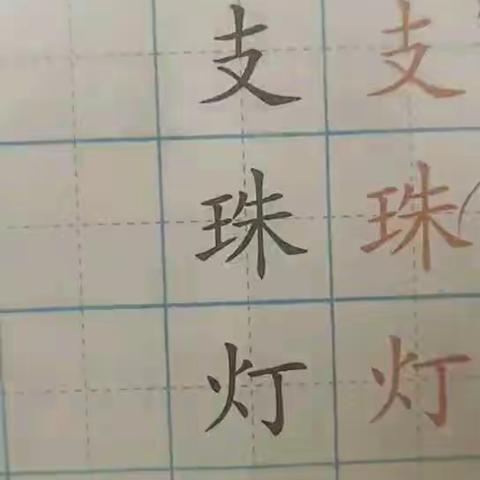 支 支
珠 珠
灯 灯